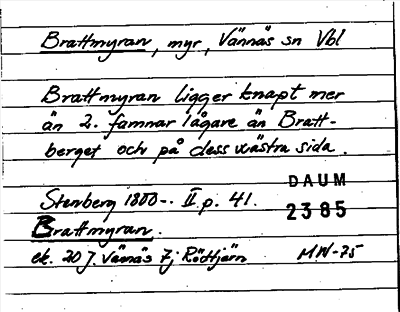 Brattmyran, myr, Vännäs sn Vbl
Brattmyran ligger knapt mer
än 2. famnar lågare än Bratt-
berget och på dess wästra sida.
DAUM
2385
Stenberg 1800-. II p. 41.
Brattmyran.
ek. 20 J. Vännäs 7j Rödtjärn
MW-75